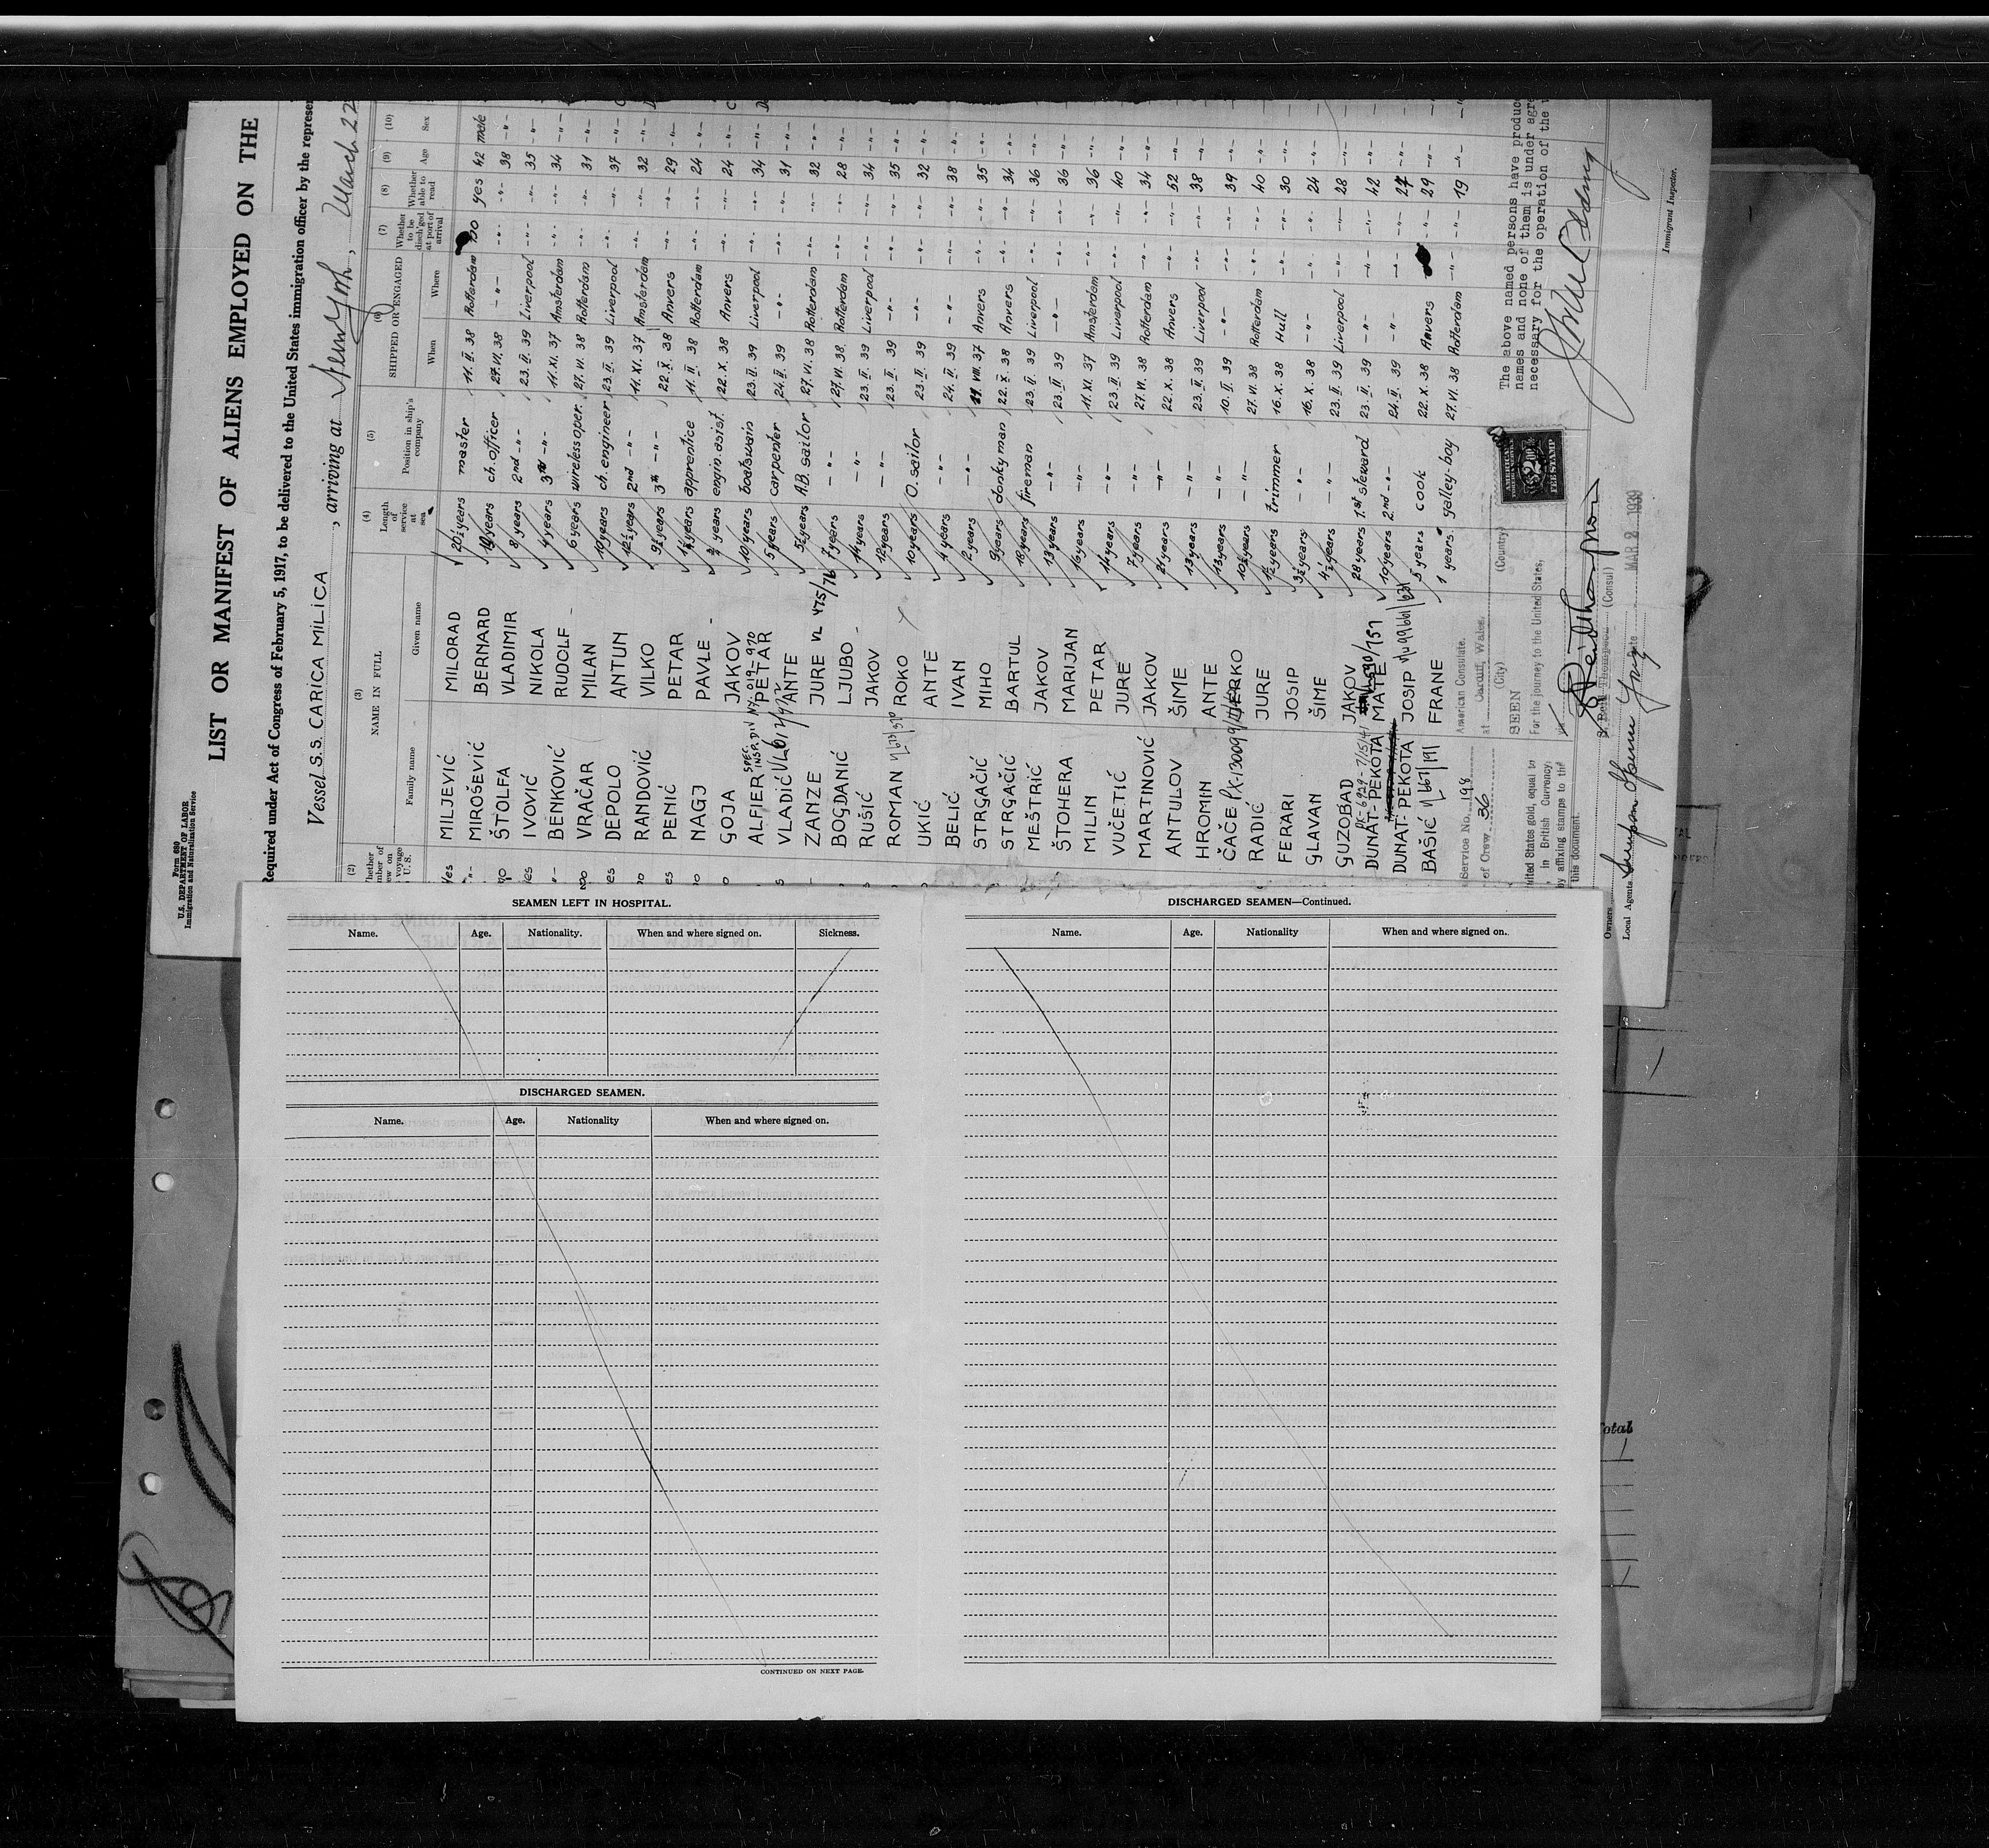 Form 680
U.S. DEPARTMENT OF LABOR
Immigration and Naturalization Service
LIST OR MANIFEST OF ALIENS EMPLOYED ON THE
Required under Act of Congress of February 5, 1917, to be delivered to the United States immigration officer by the represen
Vessel S.S. CARICA MILICA, arriving at New York, March 22
(2) (3) (4) (5) (6) (7) (8) (9) (10)
NAME IN FULL Length of service at sea Position in ship's company SHIPPED OR ENGAGED Whether to be disch'ged at port of arrival Whether able to read Age Sex
Family name Given name When Where
Yes MILJEVIĆ MILORAD 20½ years master 11. II. 38 Rotterdam no yes 42 male
-"- MIROŠEVIĆ BERNARD years ch. officer 27. VI. 38 -"- -"- -"- 38 -"-
no ŠTOLFA VLADIMIR 8 years 2nd -"- 23. II. 39 Liverpool -"- -"- 35 -"-
yes IVOVIĆ NIKOLA 4 years 3rd -"- 11. XI. 37 Amsterdam -"- -"- 34 -"-
-"- BENKOVIĆ RUDOLF 6 years wireless oper. 27. VI. 38 Rotterdam -"- -"- 31 -"-
no VRAČAR MILAN 10 years ch. engineer 23. II. 39 Liverpool -"- -"- 37 -"-
es DEPOLO ANTUN 12½ years 2nd -"- 11. XI. 37 Amsterdam -"- -"- 32 -"-
no RANDOVIĆ VILKO 9½ years 3th -"- 22. X. 38 Anvers -"- -"- 29 -"-
es PENIĆ PETAR 1½ years apprentice 11. II. 38 Rotterdam -"- -"- 24 -"-
o NAGJ PAVLE years engin. asist. 22. X. 38 Anvers -"- -"- 24 -"-
o GOJA JAKOV 10 years boatswain 23. II. 39 Liverpool -"- -"- 34 -"-
ALFIER SPEC. INSP. DIV. N.Y. 019-970 PETAR 5 years carpenter 24. II. 39 -"- -"- -"- 31 -"-
s VLADIĆ ANTE 5½ years A.B. sailor 27. VI. 38 Rotterdam -"- -"- 32 -"-
ZANZE JURE VL 475/76 7 years -"- 27. VI. 38 Rotterdam -"- -"- 28 -"-
BOGDANIĆ LJUBO 14 years -"- 23. II. 39 Liverpool -"- -"- 34 -"-
RUŠIĆ JAKOV 12 years -"- 23. II. 39 -"- -"- -"- 35 -"-
ROMAN ROKO 10 years O. sailor 23. II. 39 -"- -"- -"- 32 -"-
UKIĆ ANTE 4 years -"- 24. II. 39 -"- -"- -"- 38 -"-
BELIĆ IVAN 2 years -"- 21. VIII. 37 Anvers -"- -"- 35 -"-
STRGAČIĆ MIHO 9 years donkyman 22. X. 38 Anvers -"- -"- 34 -"-
STRGAČIĆ BARTUL 18 years fireman 23. II. 39 Liverpool -"- -"- 36 -"-
MEŠTRIĆ JAKOV 13 years -"- 23. II. 39 -"- -"- -"- 36 -"-
ŠTOHERA MARIJAN 16 years -"- 11. XI. 37 Amsterdam -"- -"- 36 -"-
MILIN PETAR 14 years -"- 23. II. 39 Liverpool -"- -"- 40 -"-
VUČETIĆ JURE 7 years -"- 27. VI. 38 Rotterdam -"- -"- 34 -"-
MARTINOVIĆ JAKOV 21 years -"- 22. X. 38 Anvers -"- -"- 52 -"-
ANTULOV ŠIME 13 years -"- 23. II. 39 Liverpool -"- -"- 38 -"-
HROMIN ANTE 13 years -"- 10. II. 39 -"- -"- -"- 39 -"-
ČAČE JERKO 10½ years -"- 27. VI. 38 Rotterdam -"- -"- 40 -"-
RADIĆ JURE 1½ years trimmer 16. X. 38 Hull -"- -"- 30 -"-
FERARI JOSIP 3½ years -"- 16. X. 38 -"- -"- -"- 24 -"-
GLAVAN ŠIME 4½ years -"- 23. II. 39 Liverpool -"- -"- 28 -"-
GUZOBAD JAKOV 28 years 1st steward 23. II. 39 -"- -"- -"- 42 -"-
DUNAT-PEKOTA MATE 10 years 2nd -"- 24. II. 39 -"- -"- -"- 27 -"-
DUNAT-PEKOTA JOSIP 5 years cook 22. X. 38 Anvers -"- 29 -"-
BAŠIĆ FRANE 1 years galley-boy 27. VI. 38 Rotterdam -"- -"- 19 -"-
Service No. 198
of Crew 36
American Consulate.
at Cardiff, Wales.
(City) (Country)
SEEN
For the journey to the United States,
via
(Consul)
MAR 2 1939
AMERICAN
$2.00
FEE STAMP
nited States gold, equal to
in British Currency,
by affixing stamps to the
this document.
The above named persons have produce
names and none of them is under agre
necessary for the operation of the v
Immigrant Inspector.
Owners
Local Agents
SEAMEN LEFT IN HOSPITAL.
Name. Age. Nationality. When and where signed on. Sickness.
DISCHARGED SEAMEN.
Name. Age. Nationality When and where signed on.
CONTINUED ON NEXT PAGE.
DISCHARGED SEAMEN—Continued.
Name. Age. Nationality When and where signed on.
Total